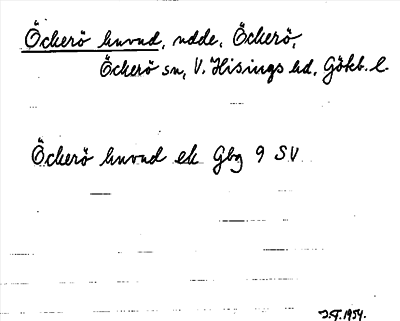 Öckerö huvud, udde, Öckerö,
Öckerö sn, V. Hisings hd, Gökb. l.
Öckerö huvud ek Gbg 9 SV
J.S. 1954.